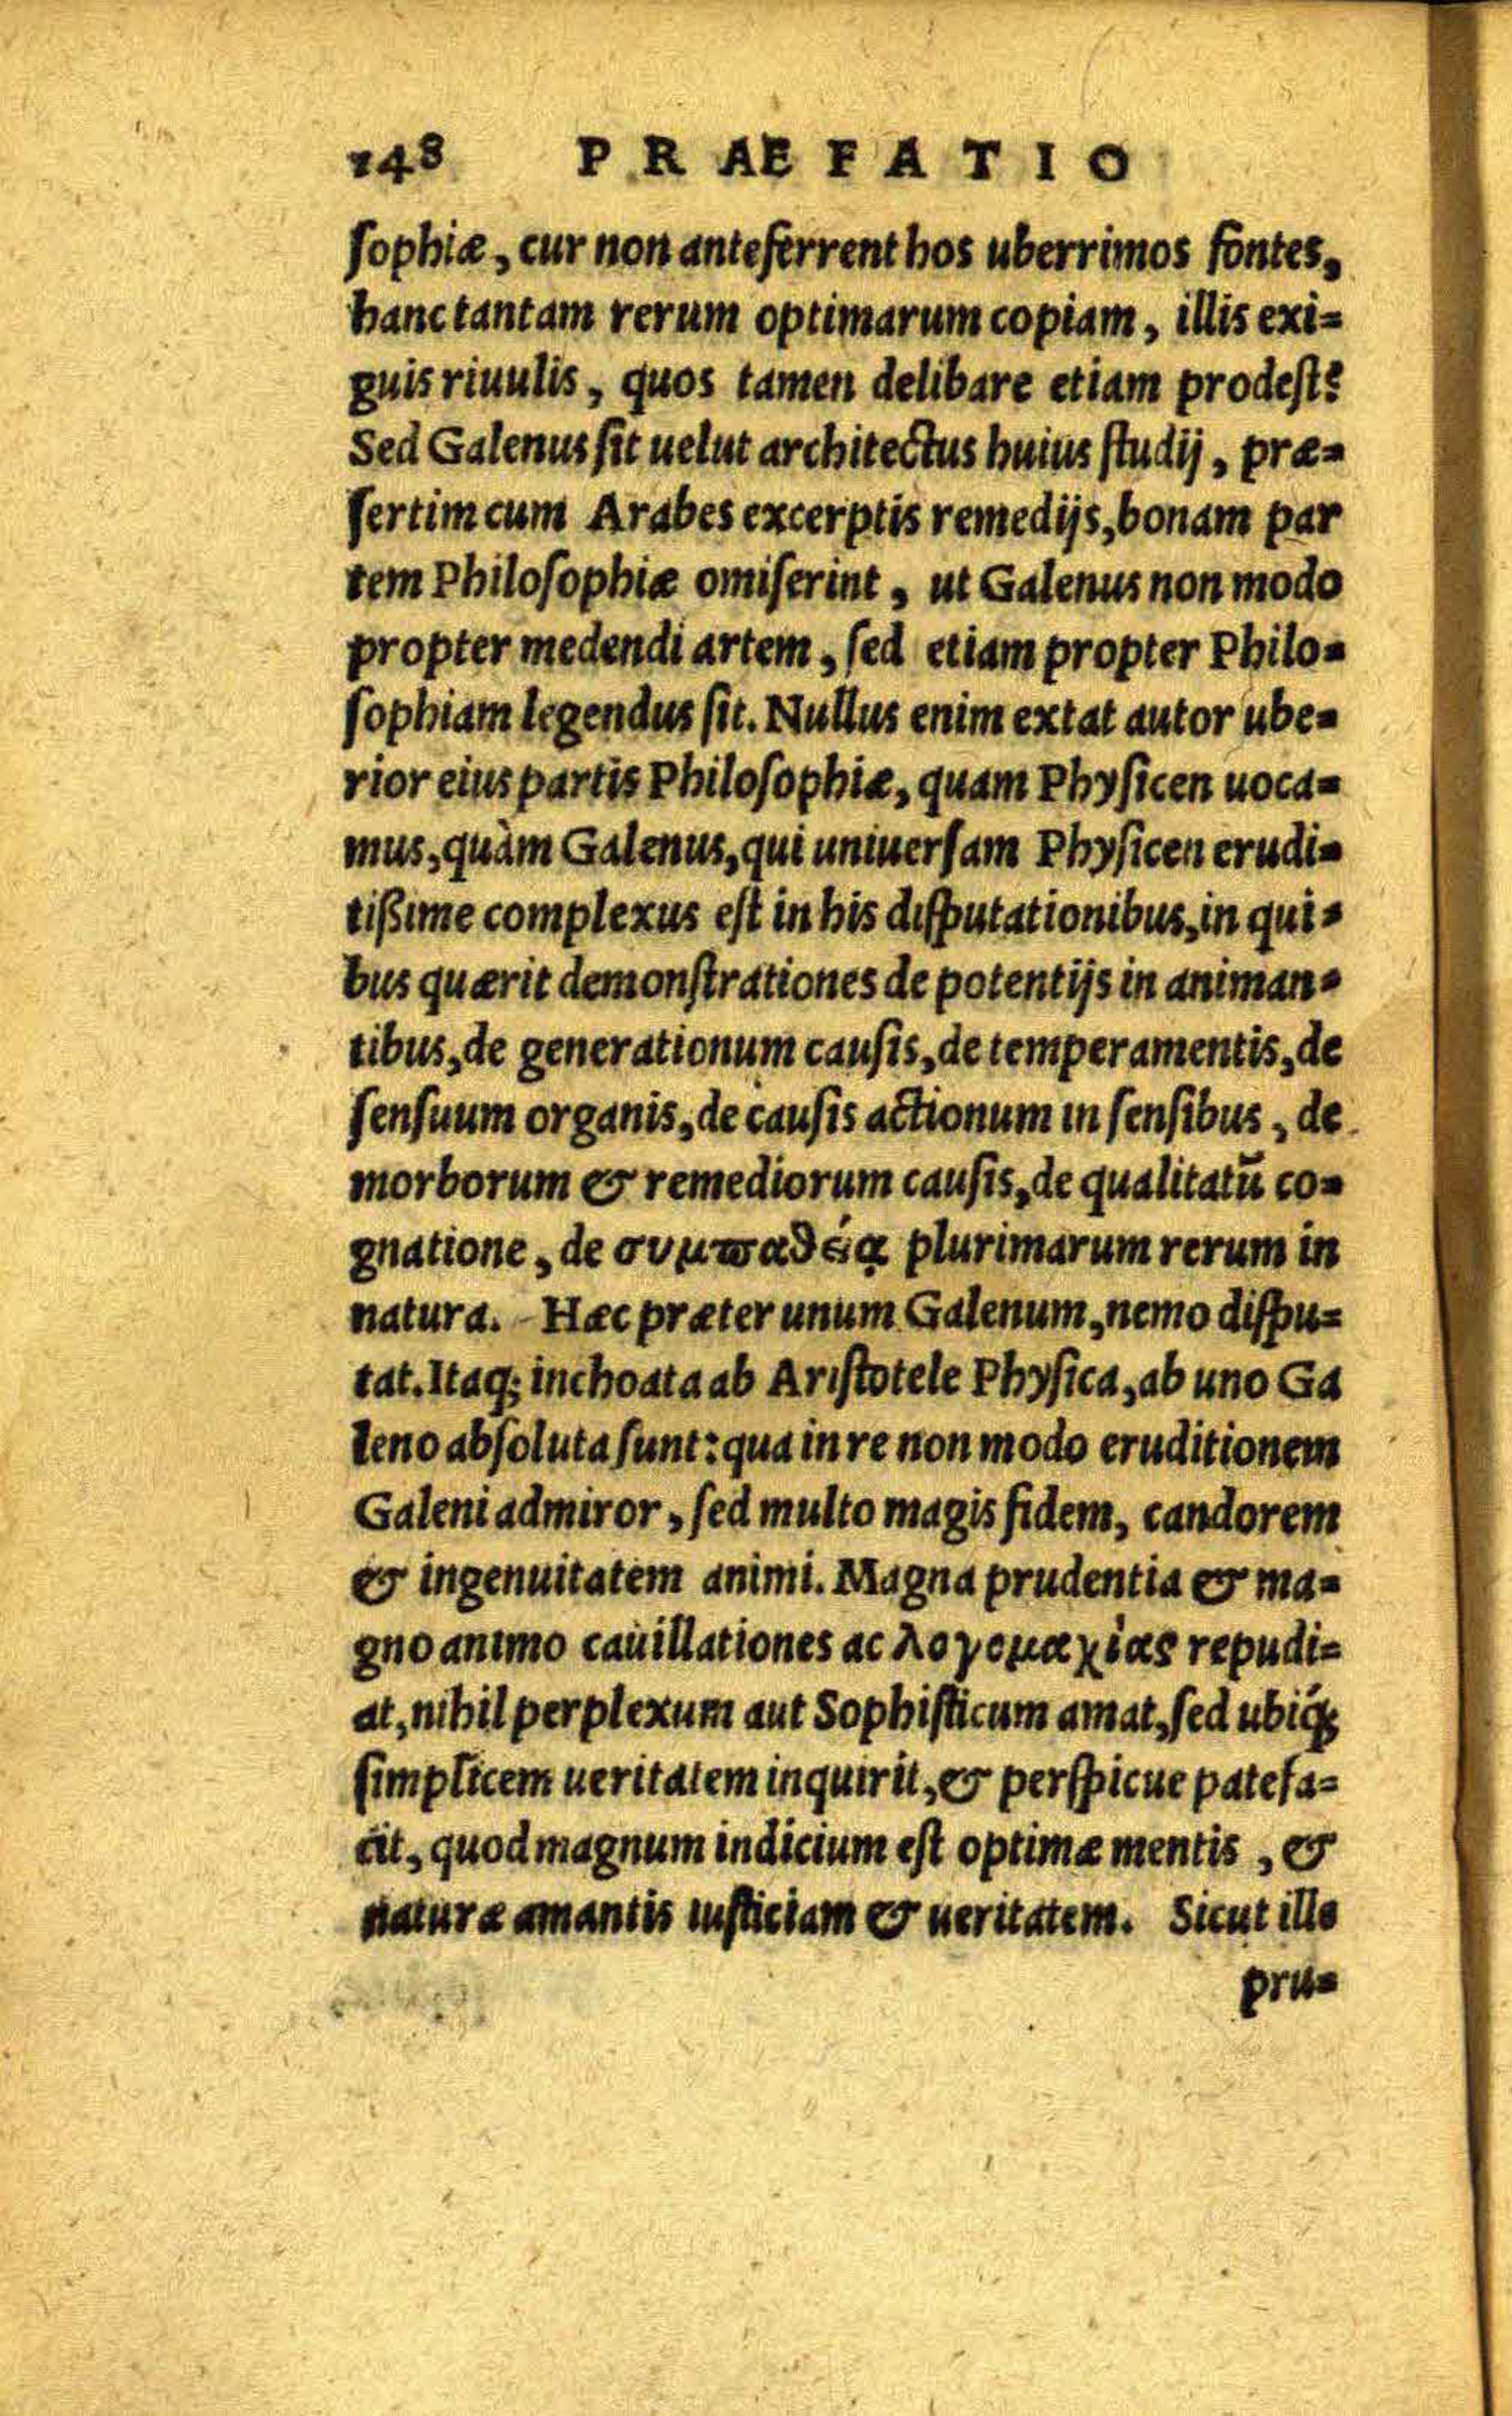 148 PRAEFATIO
sophiæ, cur non anteferrent hos uberrimos fontes,
hanc tantam rerum optimarum copiam, illis exi=
guis riuulis, quos tamen delibare etiam prodest?
Sed Galenus sit uelut architectus huius studij, præ=
sertim cum Arabes excerptis remedijs, bonam par
tem Philosophiæ omiserint, ut Galenus non modo
propter medendi artem, sed etiam propter Philo=
sophiam legendus sit. Nullus enim extat autor ube=
rior eius partis Philosophiæ, quam Physicen uoca=
mus, quàm Galenus, qui uniuersam Physicen erudi=
tißime complexus est in his disputationibus, in qui=
bus quærit demonstrationes de potentijs in animan=
tibus, de generationum causis, de temperamentis, de
sensuum organis, de causis actionum in sensibus, de
morborum & remediorum causis, de qualitatū co=
gnatione, de συμπαθείᾳ plurimarum rerum in
natura. Hæc præter unum Galenum, nemo dispu=
tat. Itaq; inchoata ab Aristotele Physica, ab uno Ga
leno absoluta sunt: qua in re non modo eruditionem
Galeni admiror, sed multo magis fidem, candorem
& ingenuitatem animi. Magna prudentia & ma=
gno animo cauillationes ac λογομαχίας repudi=
at, nihil perplexum aut Sophisticum amat, sed ubiq́;
simplicem ueritatem inquirit, & perspicue patefa=
cit, quod magnum indicium est optimæ mentis, &
naturæ amantis iusticiam & ueritatem. Sicut ille
pru=